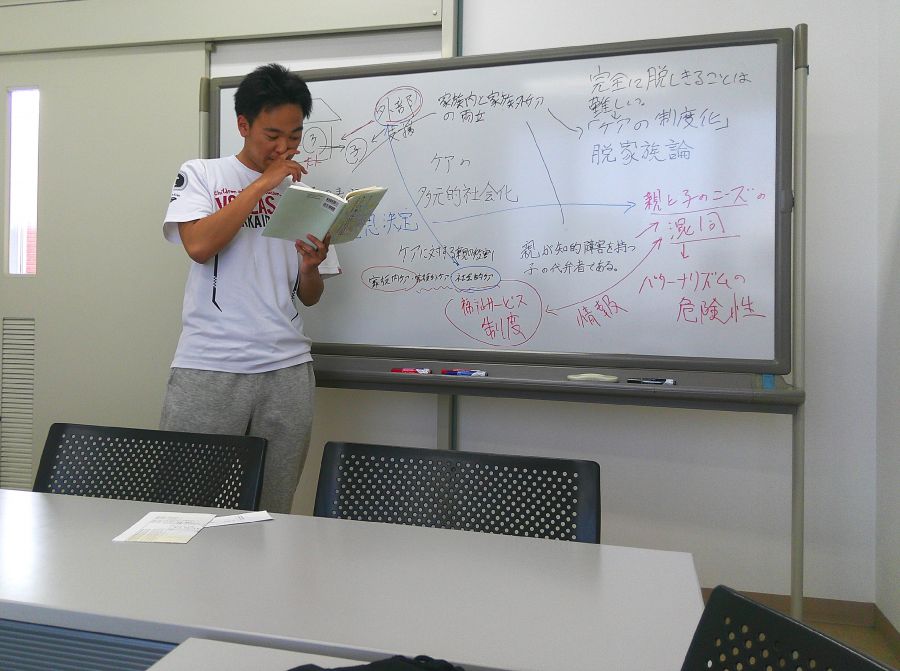 外部
支援
子
子
家族内と家族外ケア
の両立
ケアの
多元的社会化
思決定
ケアに対する
家族内ケア
社会的ケア
福祉サービス
制度
情報
親が知的障害を持つ
子の代弁者である。
完全に脱しきることは
難しい。
「ケアの制度化」
脱家族論
親と子のニーズの
混同
パターナリズムの
危険性